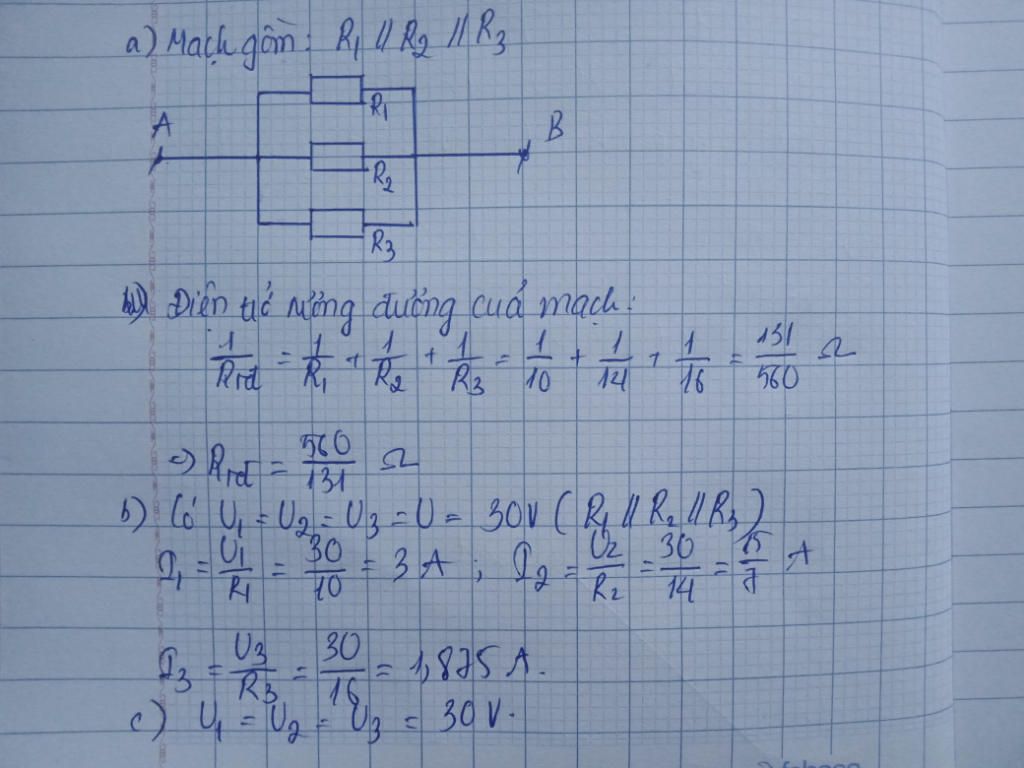 a) Mạch gồm: R1 // R2 // R3
A
B
R1
R2
R3
Điện trở tương đương của mạch:
1/Rtđ = 1/R1 + 1/R2 + 1/R3 = 1/10 + 1/14 + 1/16 = 131/560 Ω
=> Rtđ = 560/131 Ω
b) Có U1 = U2 = U3 = U = 30V (R1 // R2 // R3)
I1 = U1/R1 = 30/10 = 3 A ; I2 = U2/R2 = 30/14 = 15/7 A
I3 = U3/R3 = 30/16 = 1,875 A.
c) U1 = U2 = U3 = 30V.